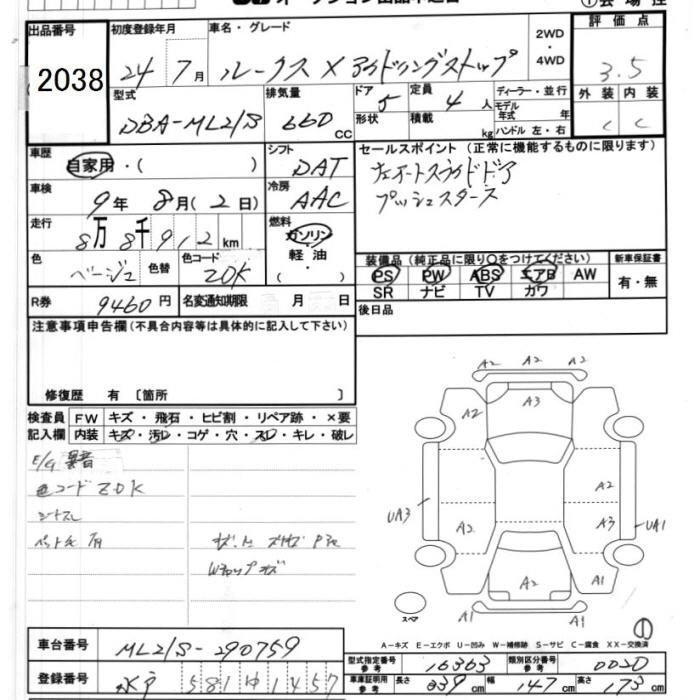 出品番号 2038
初度登録年月 24年 7月
車名・グレード ルークス X アイドリングストップ
2WD ・ 4WD
評価点 3.5
型式 DBA-ML21S
排気量 660 cc
ドア 5 形状
定員 4 人 積載 kg
ディーラー・並行 モデル年式 年 ハンドル 左・右
外装 C 内装 C
車歴 自家用・( )
シフト DAT
セールスポイント(正常に機能するものに限ります)
左オートスライドドア
プッシュスタート
車検 9年 8月(2日)
冷房 AAC
走行 8万8千912km
燃料 ガソリン 軽油 ( )
色 ベージュ 色替 色コード ZDK
装備品(純正品に限り○をつけてください) 新車保証書
PS PW ABS エアB AW 有・無
SR ナビ TV ガワ
R券 9460円 名変通知期限 月 日
後日品
注意事項申告欄(不具合内容等は具体的に記入して下さい)
修復歴 有 〔箇所 〕
検査員 FW キズ・飛石・ヒビ割・リペア跡・×要
記入欄 内装 キズ・汚レ・コゲ・穴・スレ・キレ・破レ
E/G 異音
色コード ZDK
シートスレ
A2 A2 A2
A3
A2
A2
UA3 A2 A3 UA1
A2 A1
A1 A1
スペア
A-キズ E-エクボ U-凹み W-補修跡 S-サビ C-腐食 XX-交換済
車台番号 ML21S-290759
型式指定番号 16363 類別区分番号 0020
登録番号 水戸 581 1457
車庫証明用参考 長さ 339cm 幅 147cm 高さ 173cm